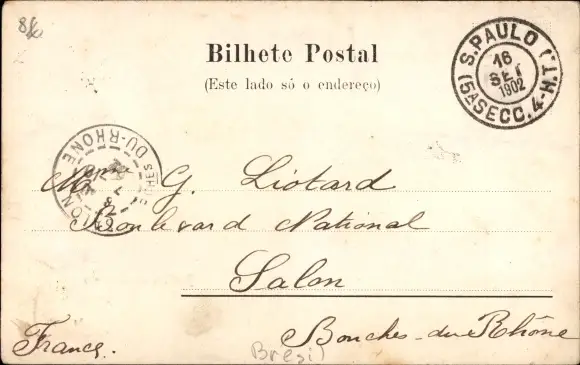 8f
Bilhete Postal
(Este lado só o endereço)
S. PAULO (1.T.)
16
SET
1902
(5ª SECC. 4-H.T.)
BOUCHES-DU-RHONE
SALON
Mme G. Liotard
Boulevard National
Salon
Bouches-du-Rhône
France.
Brésil